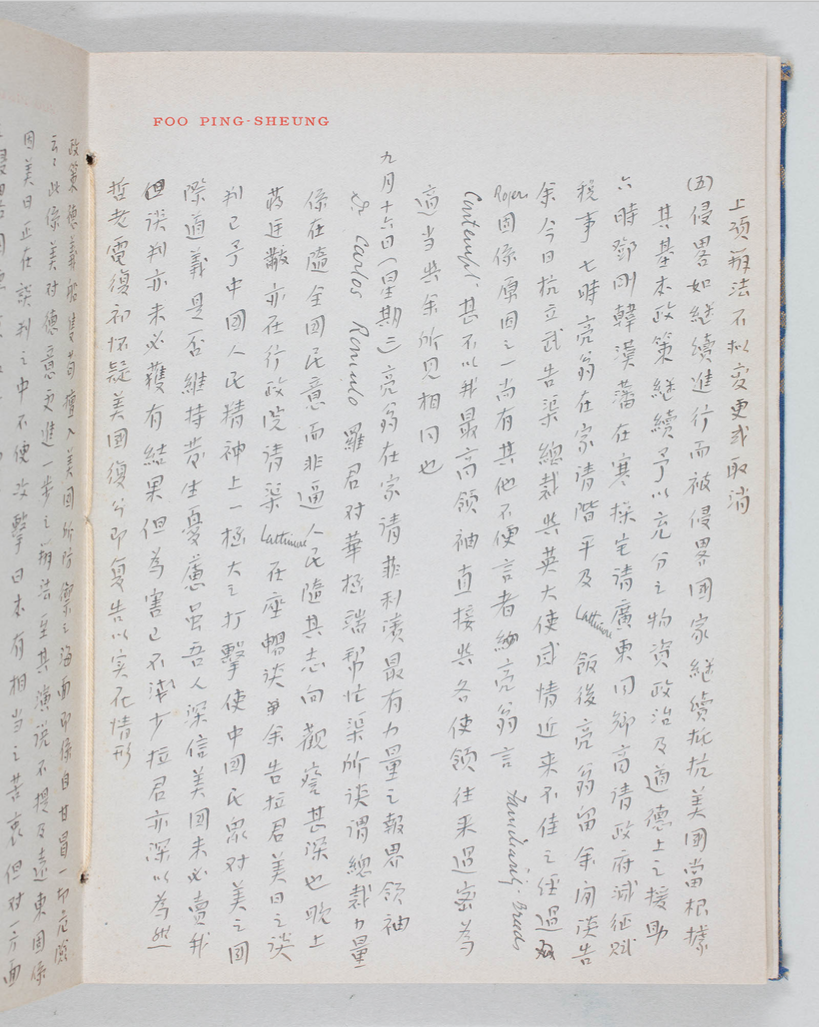 FOO PING-SHEUNG
上項辦法不擬變更或取消
(五)侵畧如繼續進行而被侵畧國家繼續抵抗美國當根據
其基本政策繼續予以充分之物資政治及道德上之援助
六時鄧剛韓漢藩在寒操宅請廣東同鄉商請政府減征賦
稅事七時亮翁在家請階平及Lattimore飯後亮翁留余閒談告
余今日杭立武告渠總裁與英大使感情近來不佳之經過
Rogers固係原因之一尚有其他不便言者亮翁言
甚不以我最高領袖直接與各使領往來過密為
適當與余所見相同也
九月十六日(星期三)亮翁在家請菲利濱最有力量之報界領袖
Carlos Romulo羅君對華極端幫忙渠所談謂總裁力量
係在隨全國民意而非逼人民隨其志向觀察甚深也晚上
蔣廷黻亦在行政院請渠Lattimore在座暢談余告拉君美日之談
判已予中國人民精神上一極大之打擊使中國民眾對美之國
際道義是否維持發生憂慮虽吾人深信美國未必賣我
但談判亦未必獲有結果但為害已不淺少拉君亦深以為然
哲老電復初怀疑美國復兮即复告以实在情形
政策德義船隻苟擅入美國所防禦之海面即係自甘冒一切危險
云云此係美对德意更進一步之辦法至其演說不提及遠東固係
因美日正在談判之中不便攻擊日本有相当之苦衷但对一方面